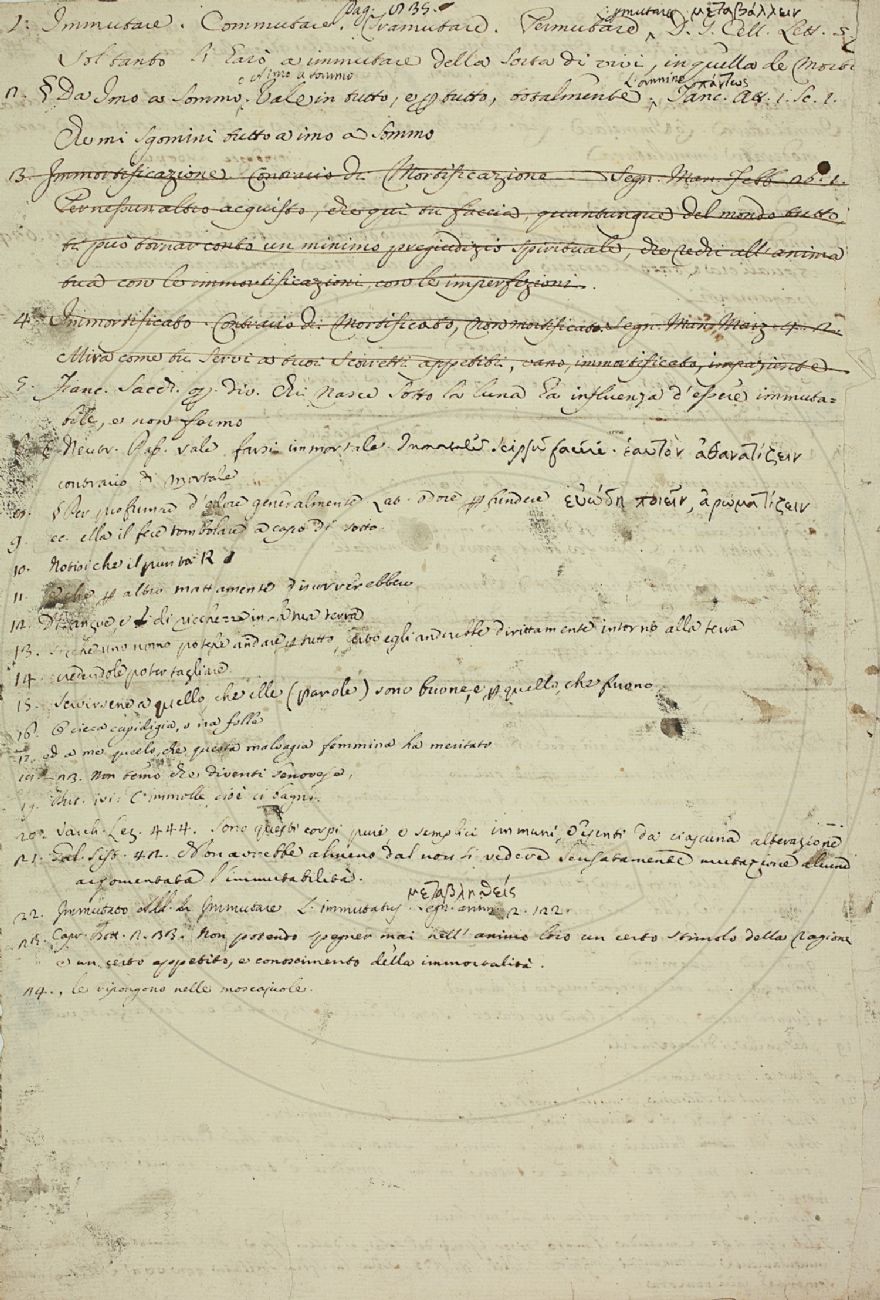 Pag. 835.
1. Immutare. Commutare. Tramutare. Permutare immutare μεταβάλλειν D. G. Cell. Lett. 5.
Soltanto li farò a immutare della sorta di vivi, in quella de Morti
2. § Da Imo a Sommo. e d'imo a sommo Vale in tutto, e p tutto, totalmente, L. omnine πάντως Tanc. Att. 1. Sc. 1.
Che mi sgomini tutto a imo a Sommo
3. Immortificazione. Contrario di Mortificazione. Segn. Man. Febb. 26. 1.
Per nessun altro acquisto, che qui tu faccia, quantunque del mondo tutto
ti può tornar conto un minimo pregiudizio spirituale, che rechi all'anima
tua con le immortificazioni, con le imperfezioni.
4. Immortificato. Contrario di Mortificato, Non mortificato. Segn. Mann. Marz. 4. 2.
Mira come tu servi a tuoi scorretti appetiti, vano, immortificato, impaziente
5. Franc. Sacch. op. div. Chi nasce sotto la luna ha influenza d'essere immuta-
bile, e non fermo
Neutr. Pass. vale farsi immortale. Immortalem seipsum facere. ἑαυτὸν ἀθανατίζειν
contrario di mortale
§ Per profumar d'odore generalmente Lat. odore perfundere εὐώδη ποιεῖν, ἀρωματίζειν
9. ec. ella il fece tombolare a capo di sotto.
10. Notisi che il punta R
11. che p altro mattamente discorrerebbero
12. D'sangue, e di ricchezze in la tua terra
13. se che uno uomo potesse andare p tutto, certo egli andrebbe dirittamente intorno alla terra
14. credendole poter tagliare
15. Servirsene a quello, che elle (parole) sono buone, e p quello, che furono
16. O cieca cupidigia, o ira folle
17. ed a me quelo, che questa malvagia femmina ha meritato
NB. Non temo che diventi Senovese,
19. But. ivi: C'immolle, cioè ci bagni.
20. Varch. Lez. 444. Sono questi corpi puri e semplici immuni, esenti da ciascuna alterazione
21. Gal. Sist. 42. Non avrebbe almeno dal non si vedere sensatamente mutazione alcuna
argomentata l'immutabilità.
22. Immutato add. da Immutare L. immutatus. μεταβληθείς Segn. anim. 2. 122
23. Capr. Bott. 2. 33. Non potendo spegner mai nell'animo loro un certo stimolo della ragione
e un certo appetito, e conoscimento della immortalità.
24., le ripongono nelle moscajuole.